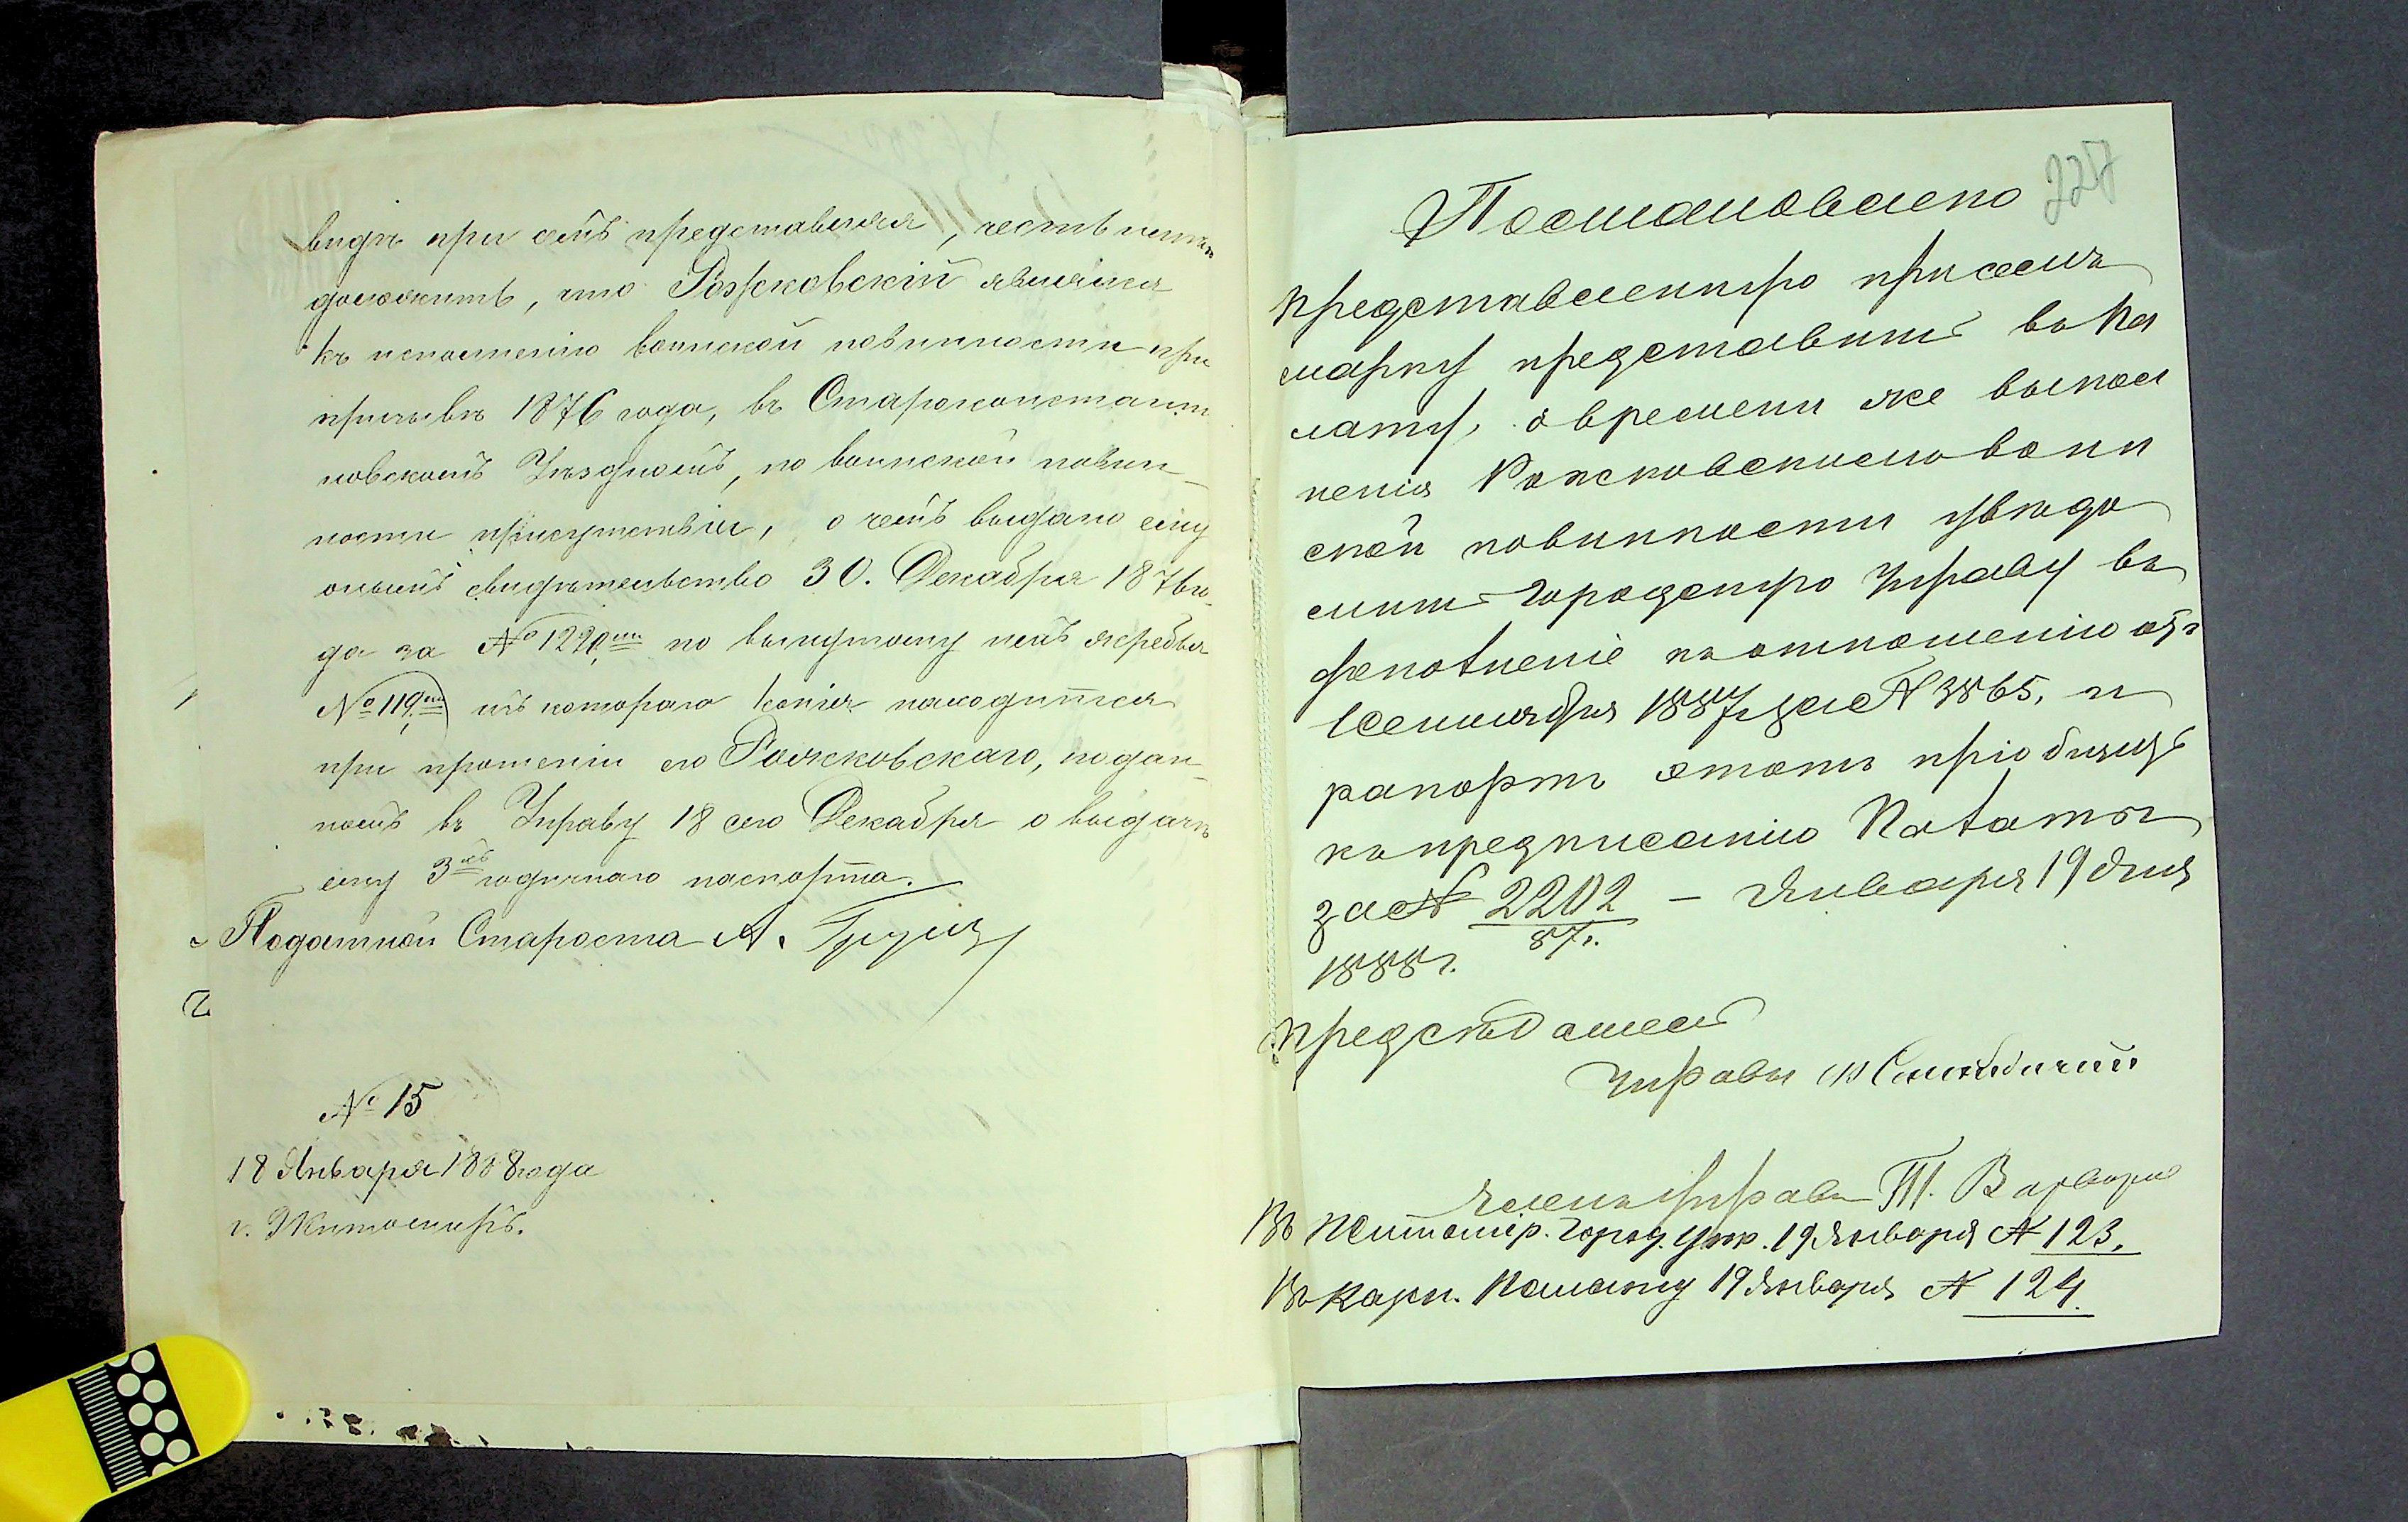 видъ при семъ представляя, честь имѣю
доложить, что Рожковскій являлся
къ исполненію воинской повинности при
призывѣ 1876 года, въ Староконстанти
новскомъ Уѣздномъ, по воинской повин-
ности присутствіи, о чемъ выдано ему
онымъ свидѣтельство 30. Декабря 1876 го-
да за № 1220, по вынутому имъ жребья
№ 119, съ котораго копія находится
при прошеніи его Рожковскаго, подан-
номъ въ Управу 18 сего Декабря о выдачѣ
ему 3хъ годичнаго паспорта.
Податной Староста А.
№ 15
18 Января 1888 года
г. Житомиръ.
Постановлено
представленную при семъ
марку представить въ Па
лату, о времени же выпол
ненія Рожковскимъ воин
ской повинности увѣдо
мить Городскую Управу въ
дополненіе къ отношенію отъ
Сентября 1887 г. за № 3865, и
рапортъ этотъ пріобщить
къ предписанію Палаты
за № 2202 - Января 19 дня
87 г.
1888 г.
Предсѣдатель
Управы
Членъ Управы
Въ Житомір. Город. Упр. 19 Января № 123.
Въ Казен. Палату 19 Января № 124.